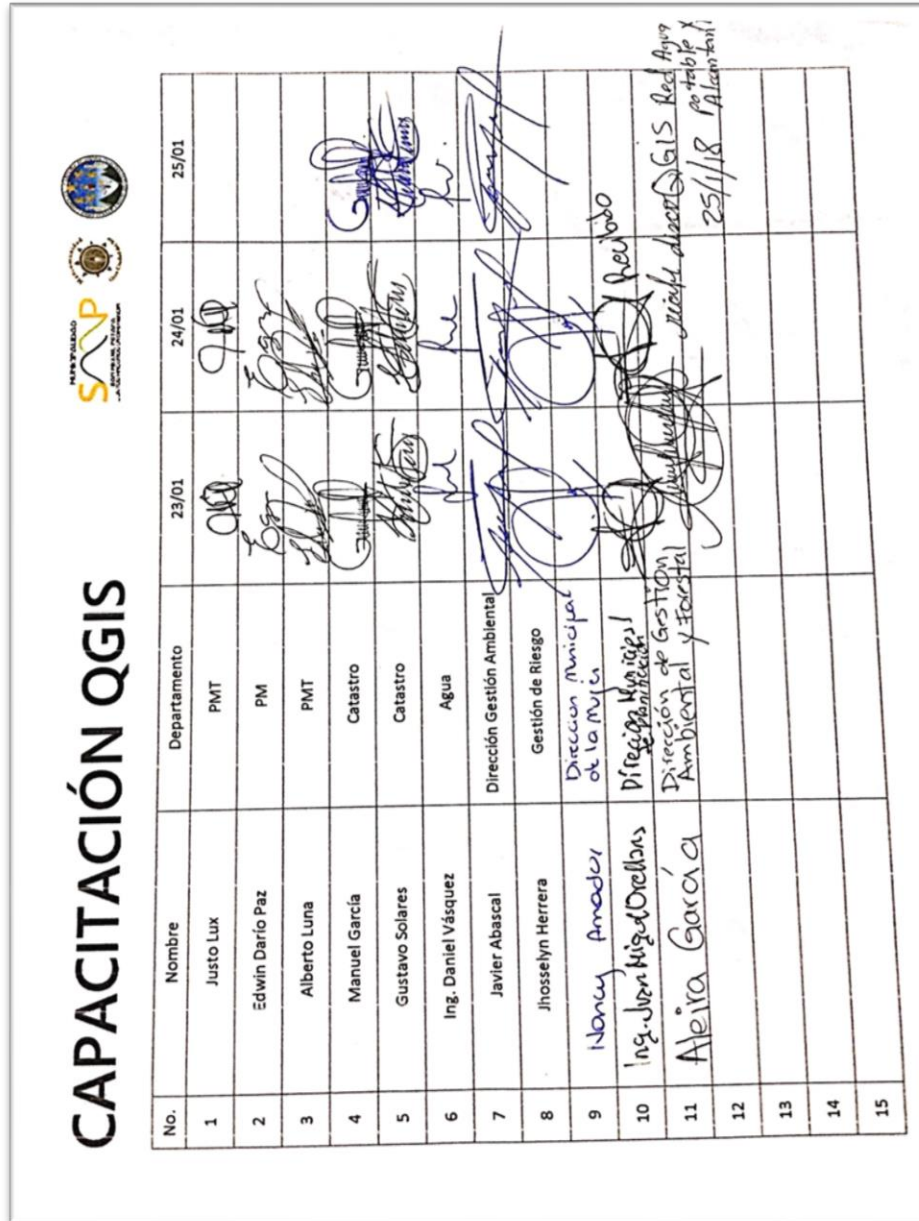 CAPACITACIÓN QGIS
MUNICIPALIDAD
SMP
No. Nombre Departamento 23/01 24/01 25/01
1 Justo Lux PMT
2 Edwin Darío Paz PM
3 Alberto Luna PMT
4 Manuel García Catastro
5 Gustavo Solares Catastro
6 Ing. Daniel Vásquez Agua
7 Javier Abascal Dirección Gestión Ambiental
8 Jhosselyn Herrera Gestión de Riesgo
9 Nancy Amador Dirección Municipal
de la Mujer
10 Ing. Juan Miguel Orellana Dirección Municipal
de Planificación
Recibido
11 Aleira García Dirección de Gestión
Ambiental y Forestal
disco QGIS Red Agua
25/1/18 Potable y
12
13
14
15